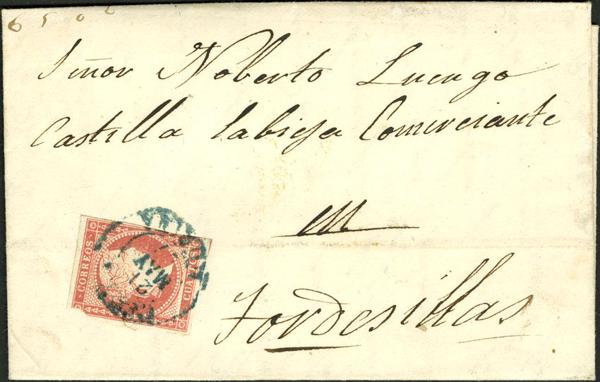 6506
Señor Noberto Luengo
Castilla la bieja Comerciante
en
Tordesillas
CORREOS
CUA
21
MAY